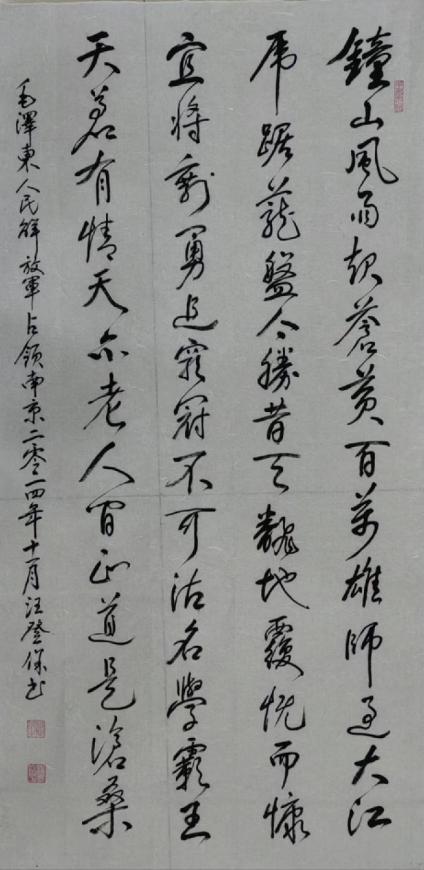 鐘山風雨起蒼黃百萬雄師過大江
虎踞龍盤今勝昔天翻地覆慨而慷
宜將剩勇追窮寇不可沽名學霸王
天若有情天亦老人間正道是滄桑
毛澤東人民解放軍占領南京二零一四年十一月汪登保书